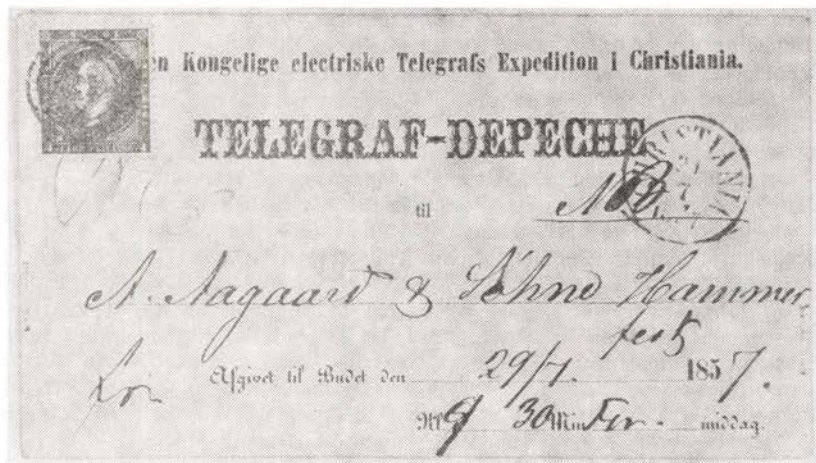 en Kongelige electriske Telegrafs Expedition i Christiania.
TELEGRAF-DEPECHE
CHRISTIANIA
29
7
til
A. Aagaard & Söhne Hammer,
fest
Afgivet til Budet den 29/7. 1857.
Kl 9 30 Min For. middag.